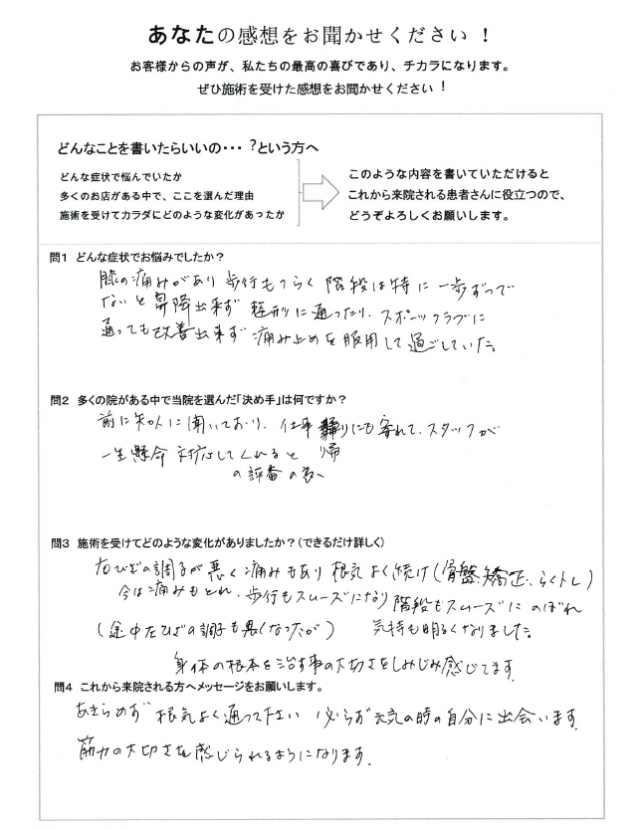 あなたの感想をお聞かせください！
お客様からの声が、私たちの最高の喜びであり、チカラになります。
ぜひ施術を受けた感想をお聞かせください！
どんなことを書いたらいいの・・・?という方へ
どんな症状で悩んでいたか
多くのお店がある中で、ここを選んだ理由
施術を受けてカラダにどのような変化があったか
このような内容を書いていただけると
これから来院される患者さんに役立つので、
どうぞよろしくお願いします。
問1 どんな症状でお悩みでしたか？
膝の痛みがあり 歩行もつらく 階段は特に 一歩ずつで
ないと昇降出来ず 整形に通ったり、スポーツクラブに
通っても改善出来ず 痛み止めを服用して過ごしていた。
問2 多くの院がある中で当院を選んだ「決め手」は何ですか？
前に知人に聞いており、仕事帰りにも寄れて、スタッフが
一生懸命 対応してくれると
の評番の為
問3 施術を受けてどのような変化がありましたか？（できるだけ詳しく）
右ひざの調子が悪く痛みもあり 根気よく続け(骨盤矯正、らくトレ)
今は痛みもとれ、歩行もスムーズになり階段もスムーズにのぼれ
(途中左ひざの調子も悪くなったが) 気持も明るくなりました。
身体の根本を治す事の大切さをしみじみ感じてます。
問4 これから来院される方へメッセージをお願いします。
あきらめず 根気よく通って下さい 必らず元気の時の自分に出会います。
筋力の大切さを感じられるようになります。